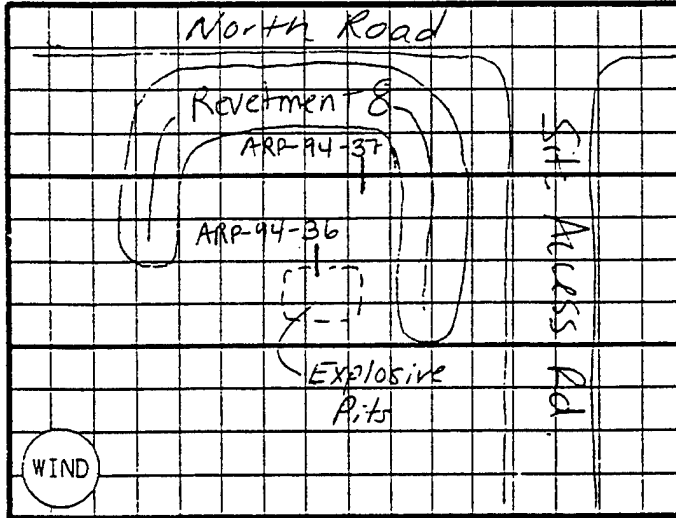 North Road
Revetment 8
ARP-94-37
ARP-94-36
Explosive
Pits
Site Access Rd.
WIND